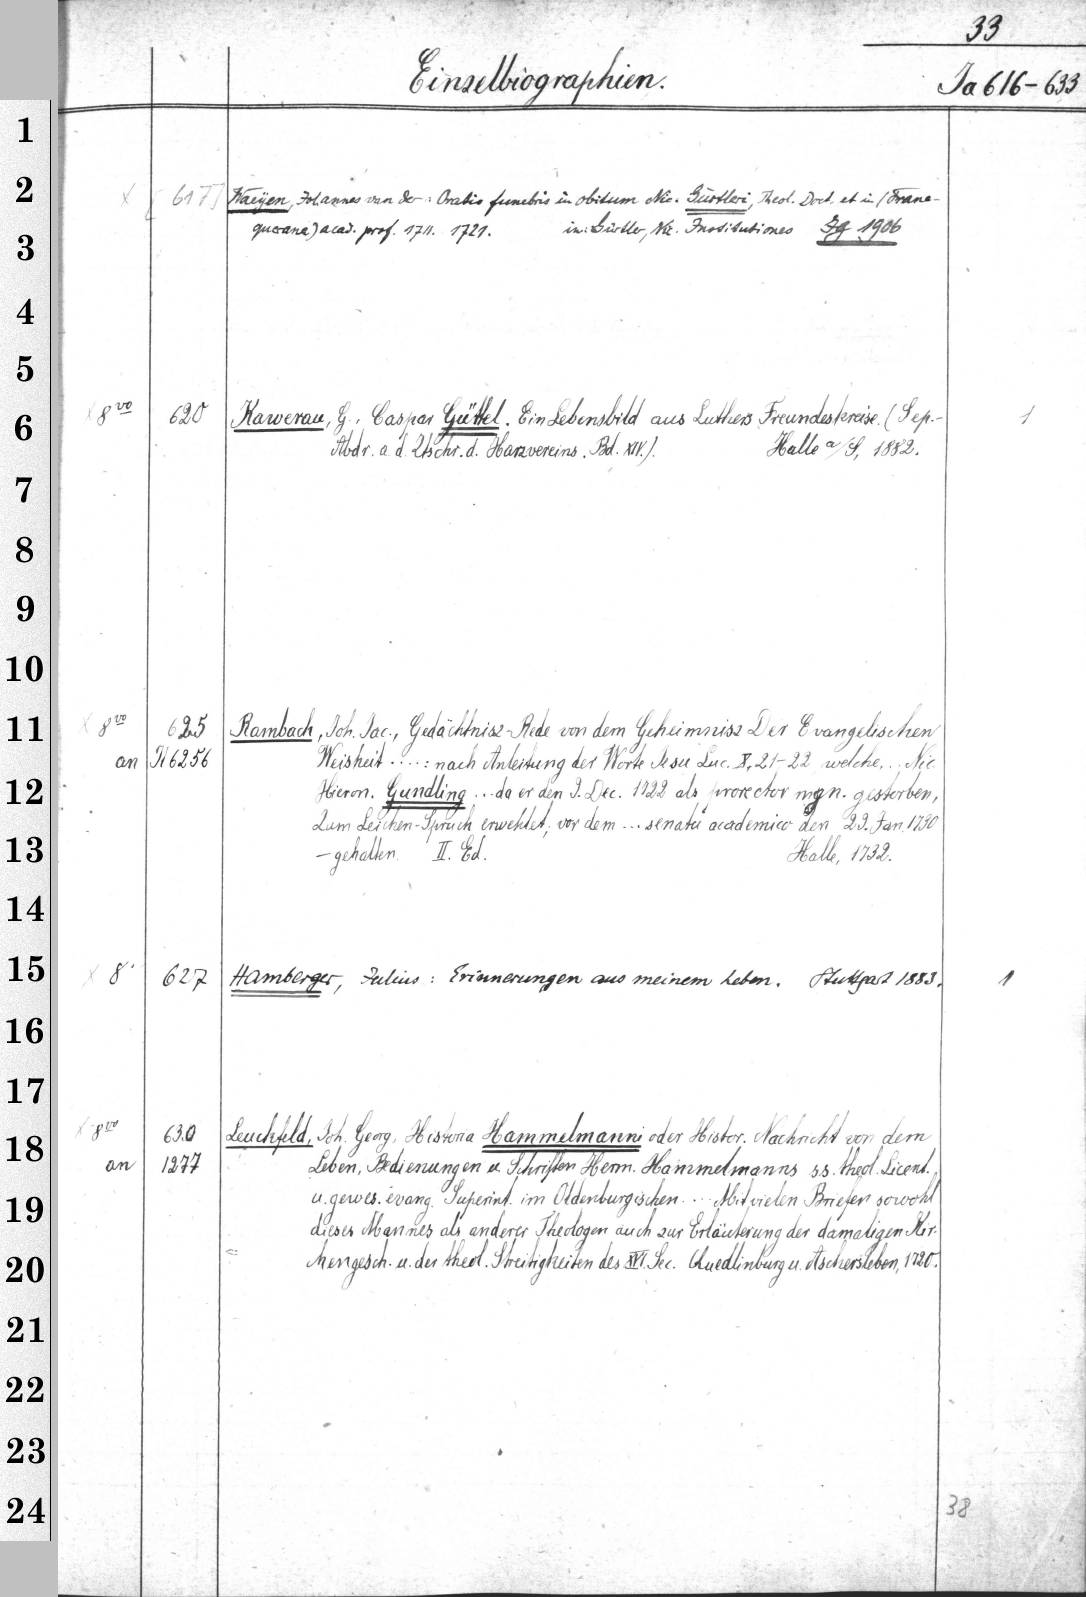 33
Einzelbiographien.
Ia 616-633
1
2
x [617] Waeÿen, Johannes van der: Oratio funebris in obitum Nic. Gürtleri, Theol. Doct. et in (Frane-
3
querana) acad. prof. 1711. 1721. in: Gürtler, Nic. Institutiones Ig 1906
4
5
6
x 8vo 620 Kawerau, G., Caspar Güttel. Ein Lebensbild aus Luthers Freundeskreise. (Sep.- 1
Abdr. a. d. Ztschr. d. Harzvereins. Bd. XIV.). Halle a/S, 1882.
7
8
9
10
11
x 8vo 625 Rambach, Joh. Jac., Gedächtnisz-Rede von dem Geheimnisz Der Evangelischen
an 6256 Weisheit ....: nach Anleitung der Worte Jesu Luc. X, 21-22 welche, .. Nic.
12
Hieron. Gundling ... da er den 9. Dec. 1722 als prorector mgn. gestorben,
Zum Leichen-Spruch erwehlet, vor dem ... senatu academico den 29. Jan. 1730
13
- gehalten. II. Ed. Halle, 1732.
14
15
x 8° 627 Hamberger, Julius: Erinnerungen aus meinem Leben. Stuttgart 1883. 1
16
17
x 8vo 630 Leuckfeld, Joh. Georg, Historia Hammelmanni oder Histor. Nachricht von dem
18
an 1277 Leben, Bedienungen u. Schriften Herm. Hammelmanns ss. theol. Licent.,
u. gewes. evang. Superint. im Oldenburgischen ... Mit vielen Briefen sowohl
19
dieses Mannes als anderer Theologen auch zur Erläuterung der damaligen Kir-
20
chengesch. u. der theol. Streitigkeiten des XVI. Sec. Quedlinburg u. Aschersleben, 1720.
21
22
23
24
38